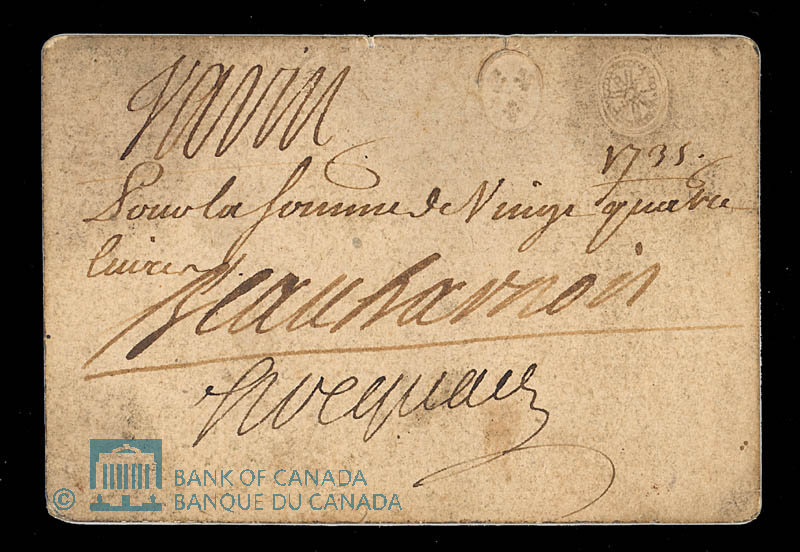 Varin
1735.
Pour la somme de Vingt quatre
livres.
Beauharnois
Hocquart
© BANK OF CANADA
BANQUE DU CANADA